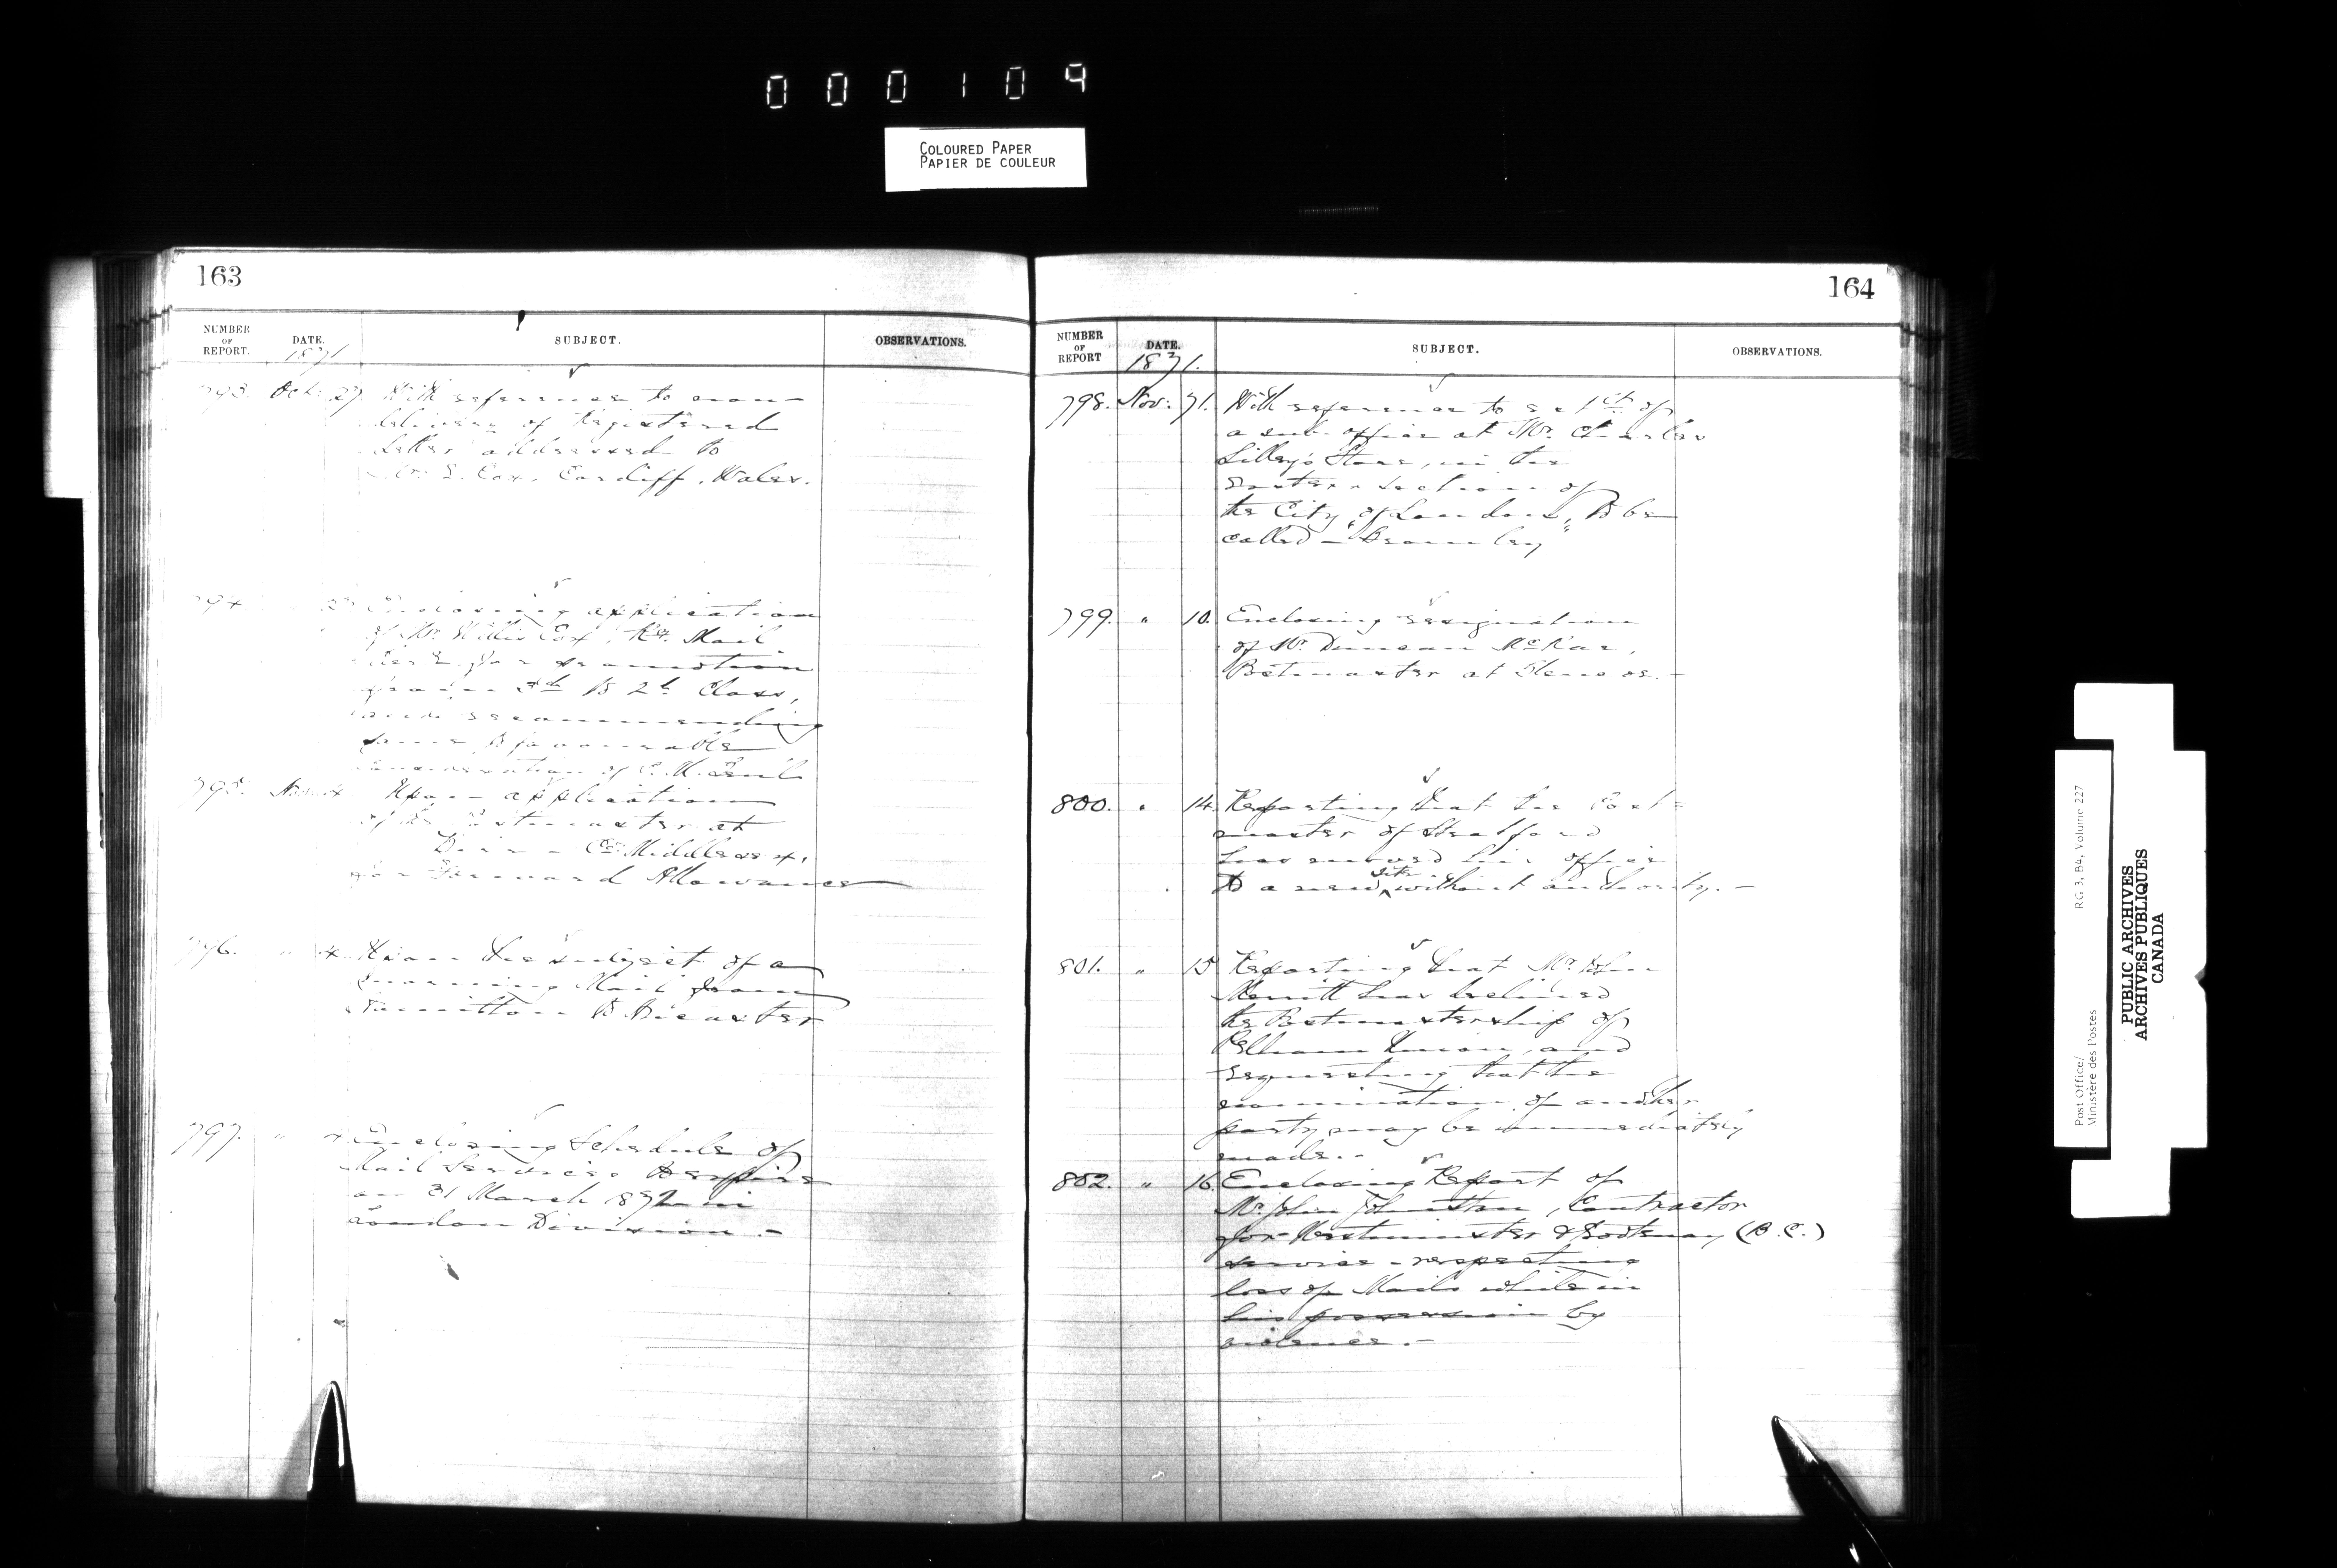 000109
COLOURED PAPER
PAPIER DE COULEUR
163
NUMBER OF REPORT. DATE. SUBJECT. OBSERVATIONS.
1871
793. Oct. 27. With reference to non-
delivery of Registered
letter addressed to
E. Cox, Cardiff, Wales.
794. Enclosing application
of Mr. Willis Cox, Ry. Mail
Clerk for promotion
from 3rd to 2nd Class,
and recommending
same to favourable
consideration of P. M. Genl.
795. Nov. 4 Upon application
of the Postmaster at
Co. Middlesex,
for Forward Allowance
796. " 4 Upon the subject of a
morning Mail from
Hamilton to
797. " 4 Enclosing Schedule of
Mail Services to expire
on 31 March 1872 in
London Division. -
164
NUMBER OF REPORT DATE. SUBJECT. OBSERVATIONS.
1871.
798. Nov. 7. With reference to of
a sub office at Mr. Charles
Lilley's Store, in the
Eastern Section of
the City of London, to be
called
799. " 10. Enclosing resignation
of Mr. Duncan McRae,
Postmaster at Glencoe. -
800. " 14. Reporting that the Post-
master of Stratford
has moved his office
to a new site without authority. -
801. " 15 Reporting that Mr. John
Merritt has declined
the Postmastership of
Pelham Union, and
requesting that the
nomination of another
party may be immediately
made. -
802. " 16. Enclosing Report of
Mr. John Johnston, Contractor
for Westminster & Kootenay (B.C.)
service - respecting
loss of Mails while in
his possession by
violence. -
Post Office/ RG 3, B4, Volume 227
Ministère des Postes
PUBLIC ARCHIVES
ARCHIVES PUBLIQUES
CANADA